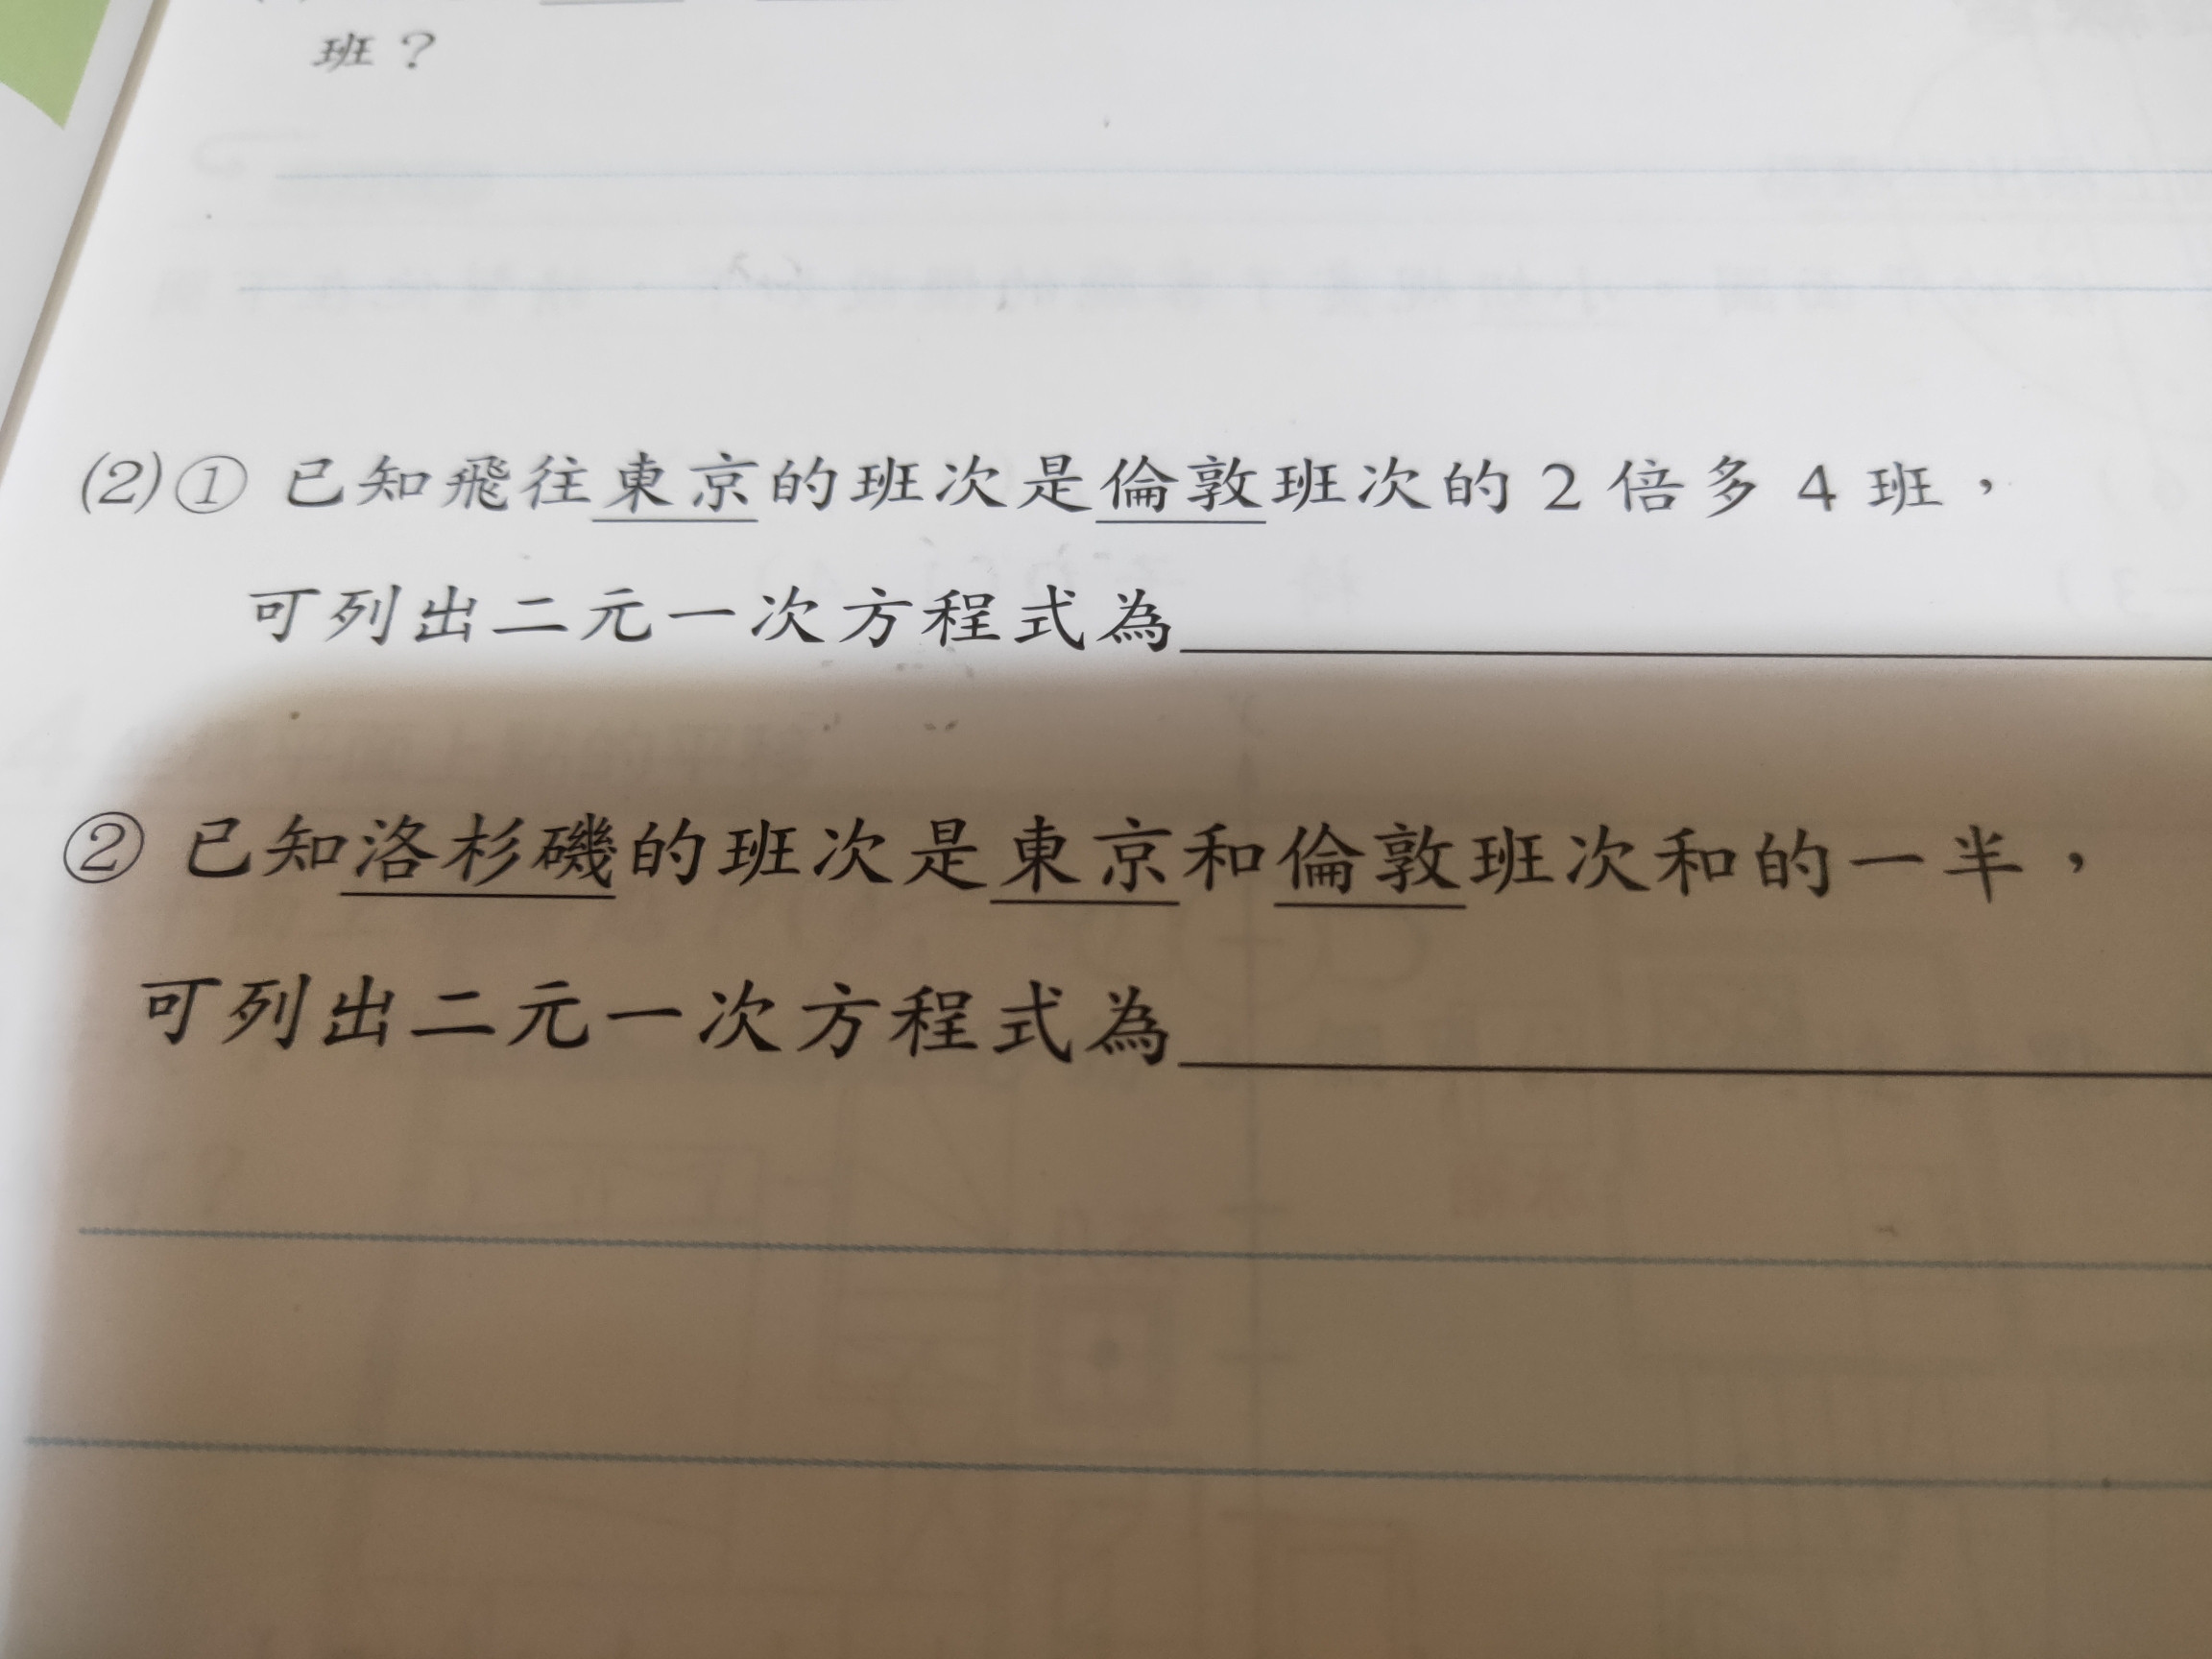 班？
(2)① 已知飛往東京的班次是倫敦班次的 2 倍多 4 班，
可列出二元一次方程式為
② 已知洛杉磯的班次是東京和倫敦班次和的一半，
可列出二元一次方程式為